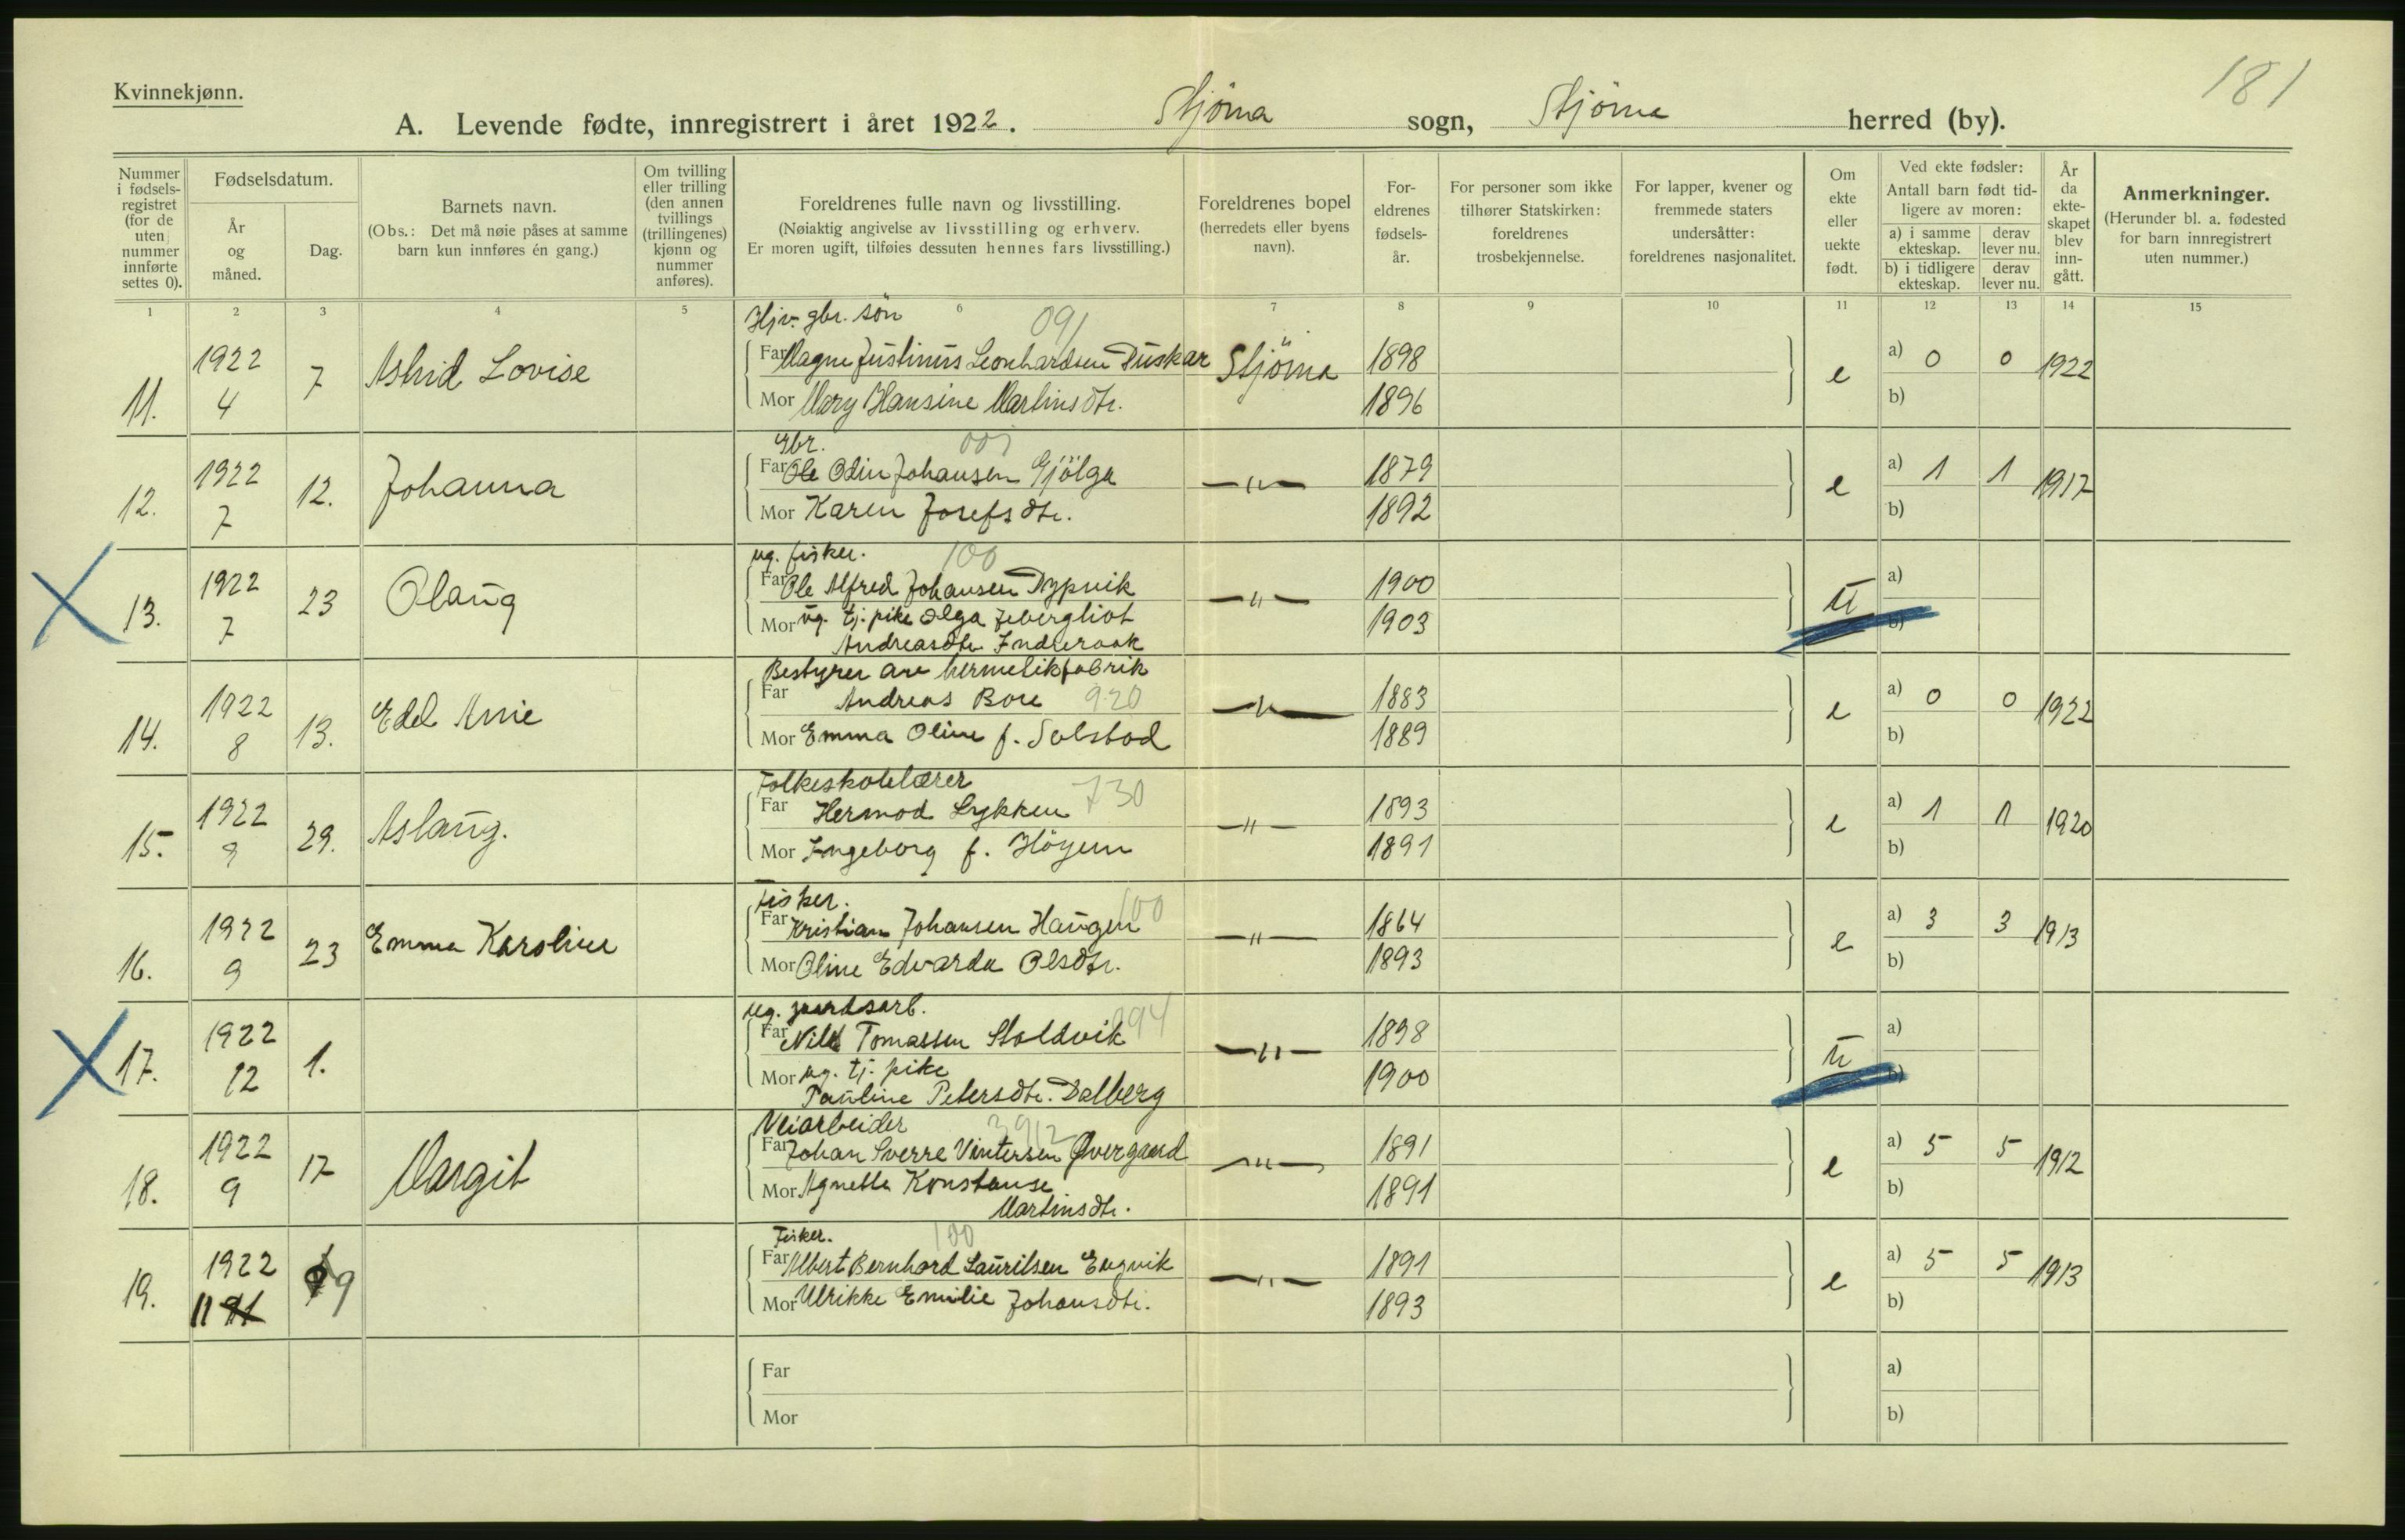 Kvinnekjønn.
181
A. Levende fødte, innregistrert i året 1922. Stjörna sogn, Stjörna herred (by).
Nummer i fødsels-registret (for de uten nummer innførte settes 0).
Fødselsdatum.
År og måned.
Dag.
Barnets navn.
(Obs.: Det må nøie påses at samme barn kun innføres én gang.)
Om tvilling eller trilling (den annen tvillings (trillingenes) kjønn og nummer anføres).
Foreldrenes fulle navn og livsstilling.
(Nøiaktig angivelse av livsstilling og erhverv.
Er moren ugift, tilføies dessuten hennes fars livsstilling.)
Foreldrenes bopel
(herredets eller byens navn).
For-eldrenes fødsels-år.
For personer som ikke tilhører Statskirken: foreldrenes trosbekjennelse.
For lapper, kvener og fremmede staters undersåtter: foreldrenes nasjonalitet.
Om ekte eller uekte født.
Ved ekte fødsler:
Antall barn født tid-ligere av moren:
a) i samme ekteskap.
derav lever nu.
b) i tidligere ekteskap.
derav lever nu.
År da ekte-skapet blev inn-gått.
Anmerkninger.
(Herunder bl. a. fødested for barn innregistrert uten nummer.)
1 2 3 4 5 6 7 8 9 10 11 12 13 14 15
Hjv. gbr. sön 091
11. 1922 4 7 Astrid Lovise
Far Magne Justinus Leonhardsen Duskar Stjörna 1898 e a) 0 0 1922
Mor Mary Hansine Martinsdtr. 1896 b)
Gbr. 001
12. 1922 7 12. Johanna
Far Ole Odin Johansen Gjölga —"— 1879 e a) 1 1 1917
Mor Karen Josefsdtr. 1892 b)
ug. fisker. 100
13. 1922 7 23 Olaug
Far Ole Alfred Johansen Dypvik —"— 1900 u a)
Mor ug. tj. pike Olga 1903 b)
Andreasdtr.
14. 1922 8 13. Edel Anie
Bestyrer av hermetikfabrik
Far Andreas Boe 920 —"— 1883 e a) 0 0 1922
Mor Emma Oline f. Solstad 1889 b)
Folkeskolelærer 730
15. 1922 9 29. Aslaug.
Far Hermod Lykken —"— 1893 e a) 1 1 1920
Mor Ingeborg f. Höyem 1891 b)
Fisker. 100
16. 1922 9 23 Emma Karoline
Far Kristian Johansen Haugen —"— 1864 e a) 3 3 1913
Mor Oline Edvarda Olsdtr. 1893 b)
ug. 094
17. 1922 12 1.
Far Nils Tomassen Stoldvik —"— 1898 u a)
Mor ug. tj. pike 1900 b)
Pauline Petersdtr. Dalberg
Veiarbeider 3912
18. 1922 9 17 Margit
Far Johan Sverre Vintersen Øvergaard —"— 1891 e a) 5 5 1912
Mor Agnette Konstanse 1891 b)
Martinsdtr.
Fisker. 100
19. 1922 11 19
Far Albert Bernhard Lauritsen Engvik —"— 1891 e a) 5 5 1913
Mor Ulrikke Emilie Johansdtr. 1893 b)
Far a)
Mor b)